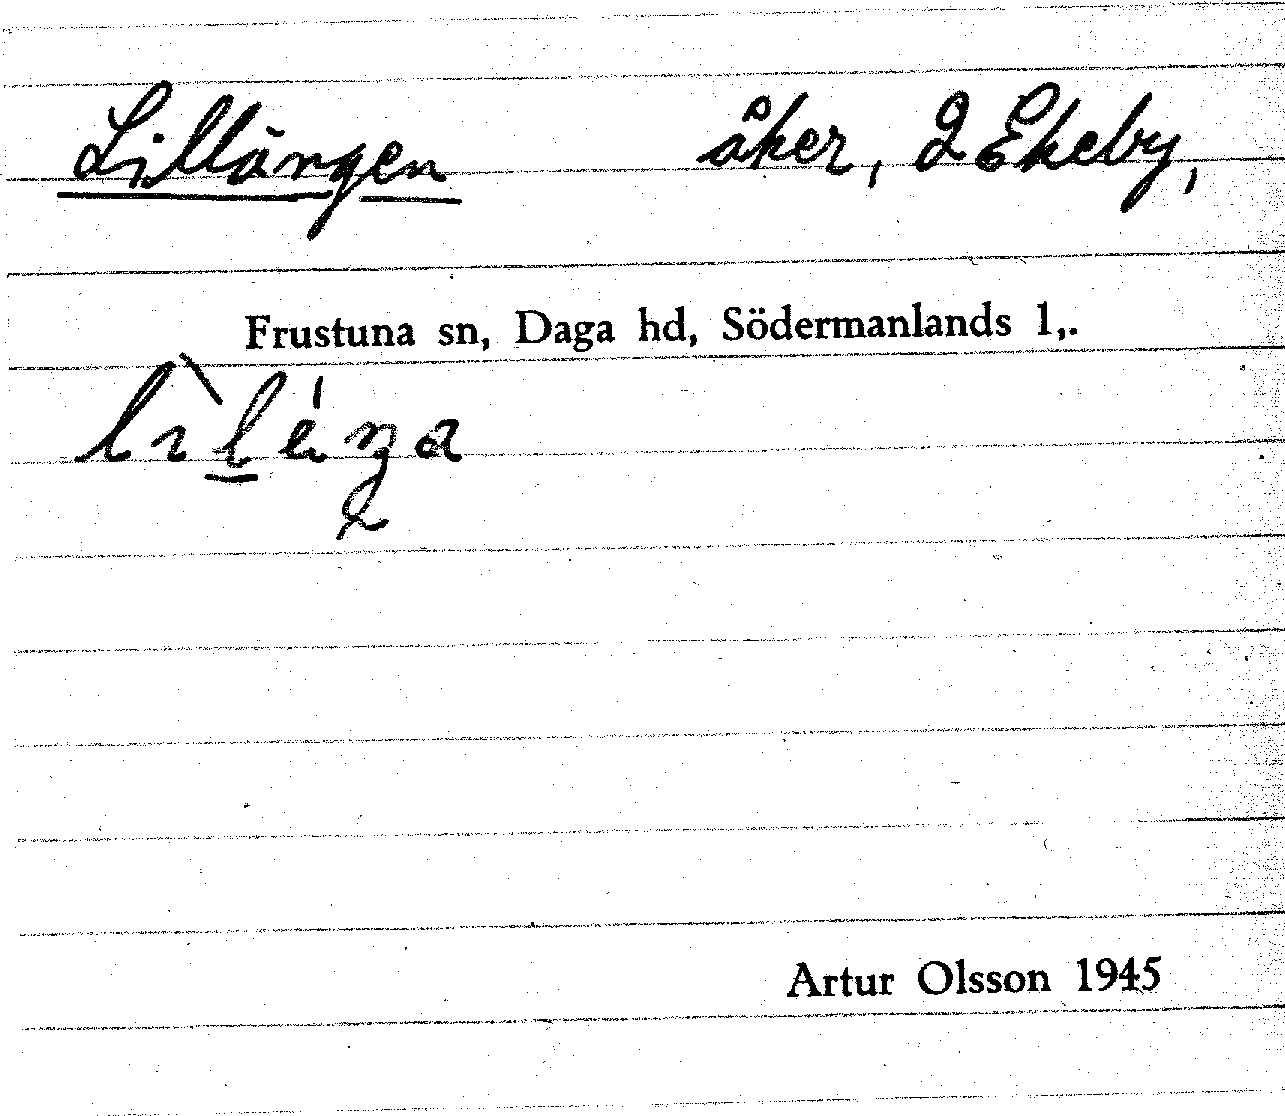 Lillängen åker, 2 Ekeby,
Frustuna sn, Daga hd, Södermanlands l,.
Artur Olsson 1945